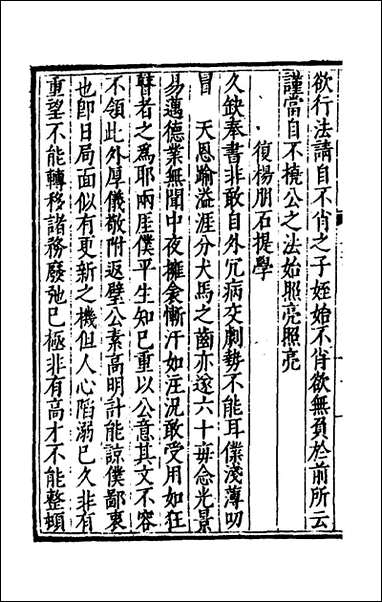 欲行法請自不肖之子姪始不肖欲無負於前所云
謹當自不撓公之法始照亮照亮
復楊朋石提學
久缺奉書非敢自外冗病交劇勢不能耳僕淺薄叨
冒　天恩踰溢涯分犬馬之齒亦遂六十每念光景
易邁德業無聞中夜擁衾慚汗如注況敢受用如狂
瞽者之為耶兩厓僕平生知已重以公意其文不容
不領此外厚儀敬附返璧公素高明計能諒僕鄙衷
也卽日局面似有更新之機但人心陷溺已久非有
重望不能轉移諸務廢弛已極非有高才不能整頓